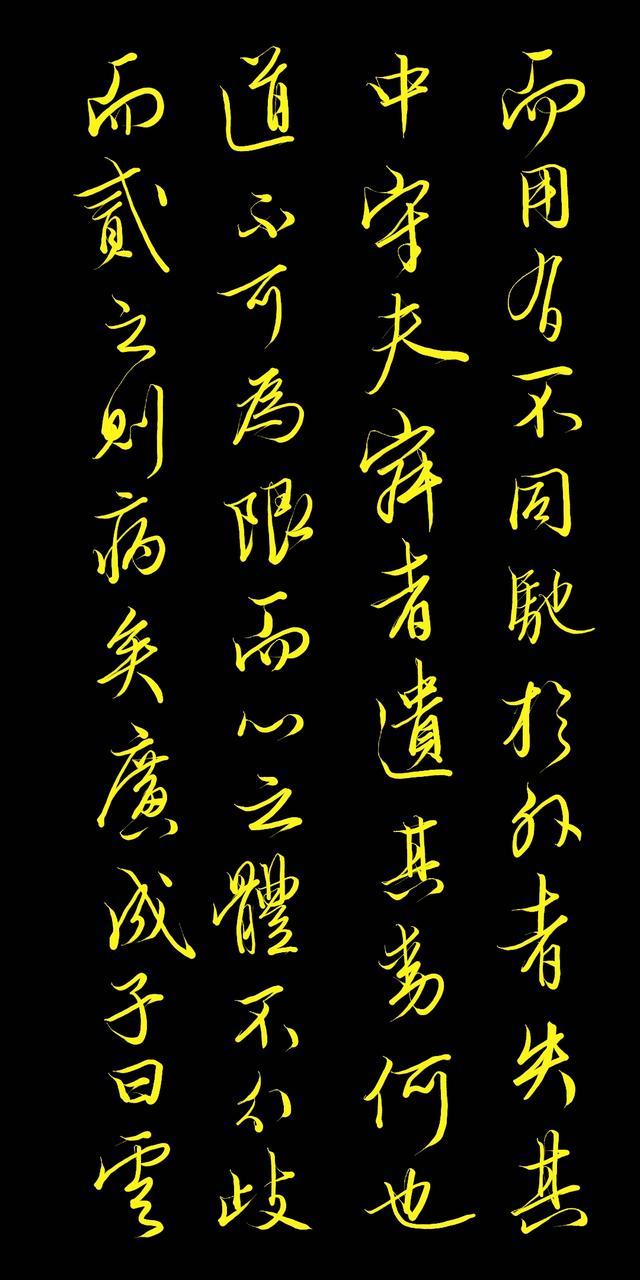 而用有不同馳於外者失其
中守夫寂者遺其動何也
道不可為限而心之體不可歧
而貳之則病矣廣成子曰雲